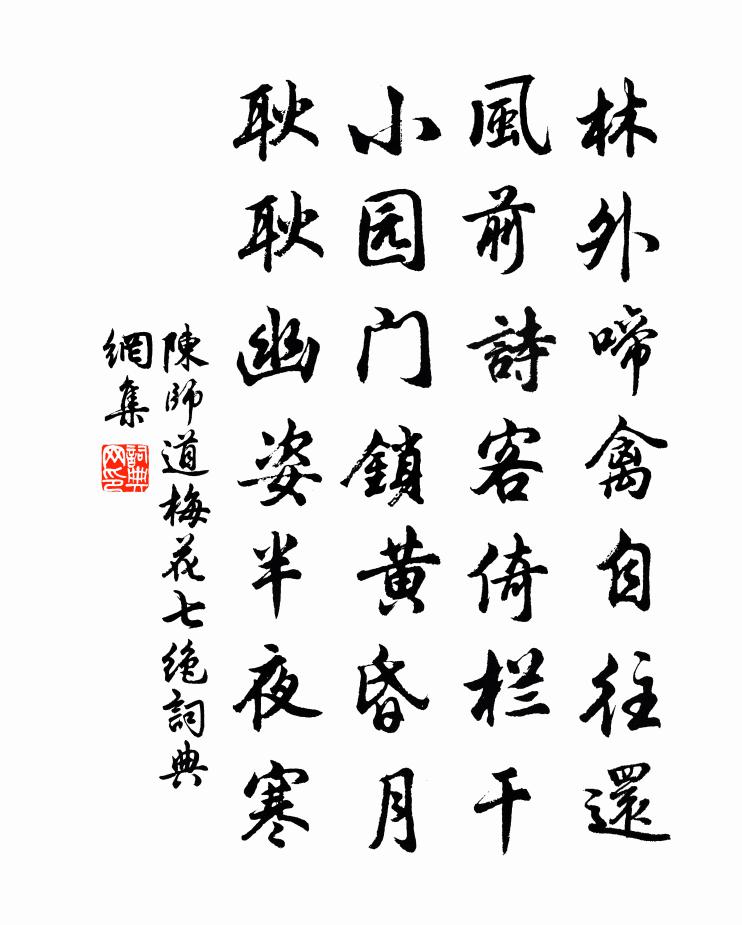 林外啼禽自往還
風前詩客倚栏干
小园门鎖黄昏月
耿耿幽姿半夜寒
陳師道梅花七绝詞典
網集
詞典
网印